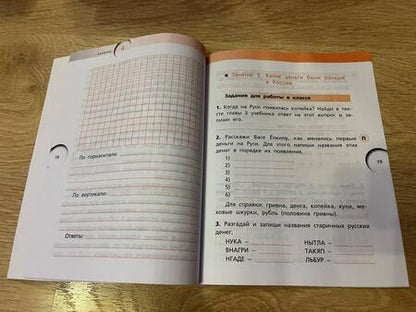 По горизонтали:
По вертикали:
Ответы:
Занятие 3. Какие деньги были раньше
в России
Задания для работы в классе
1. Когда на Руси появилась копейка? Найди в тек-
сте главы 3 учебника ответ на этот вопрос и за-
пиши его.
2. Расскажи Васе Ёлкину, как менялись первые
деньги на Руси. Для этого напиши названия этих
денег в порядке их появления.
1)
2)
3)
4)
5)
6)
Для справки: гривна, деньга, копейка, куна, ме-
ховые шкурки, рубль (половина гривны).
3. Разгадай и запиши названия старинных русских
денег.
НУКА – НЫТЛА –
ВНАГРИ – ТАКЯП –
НГАДЕ – ЛЬБУР –